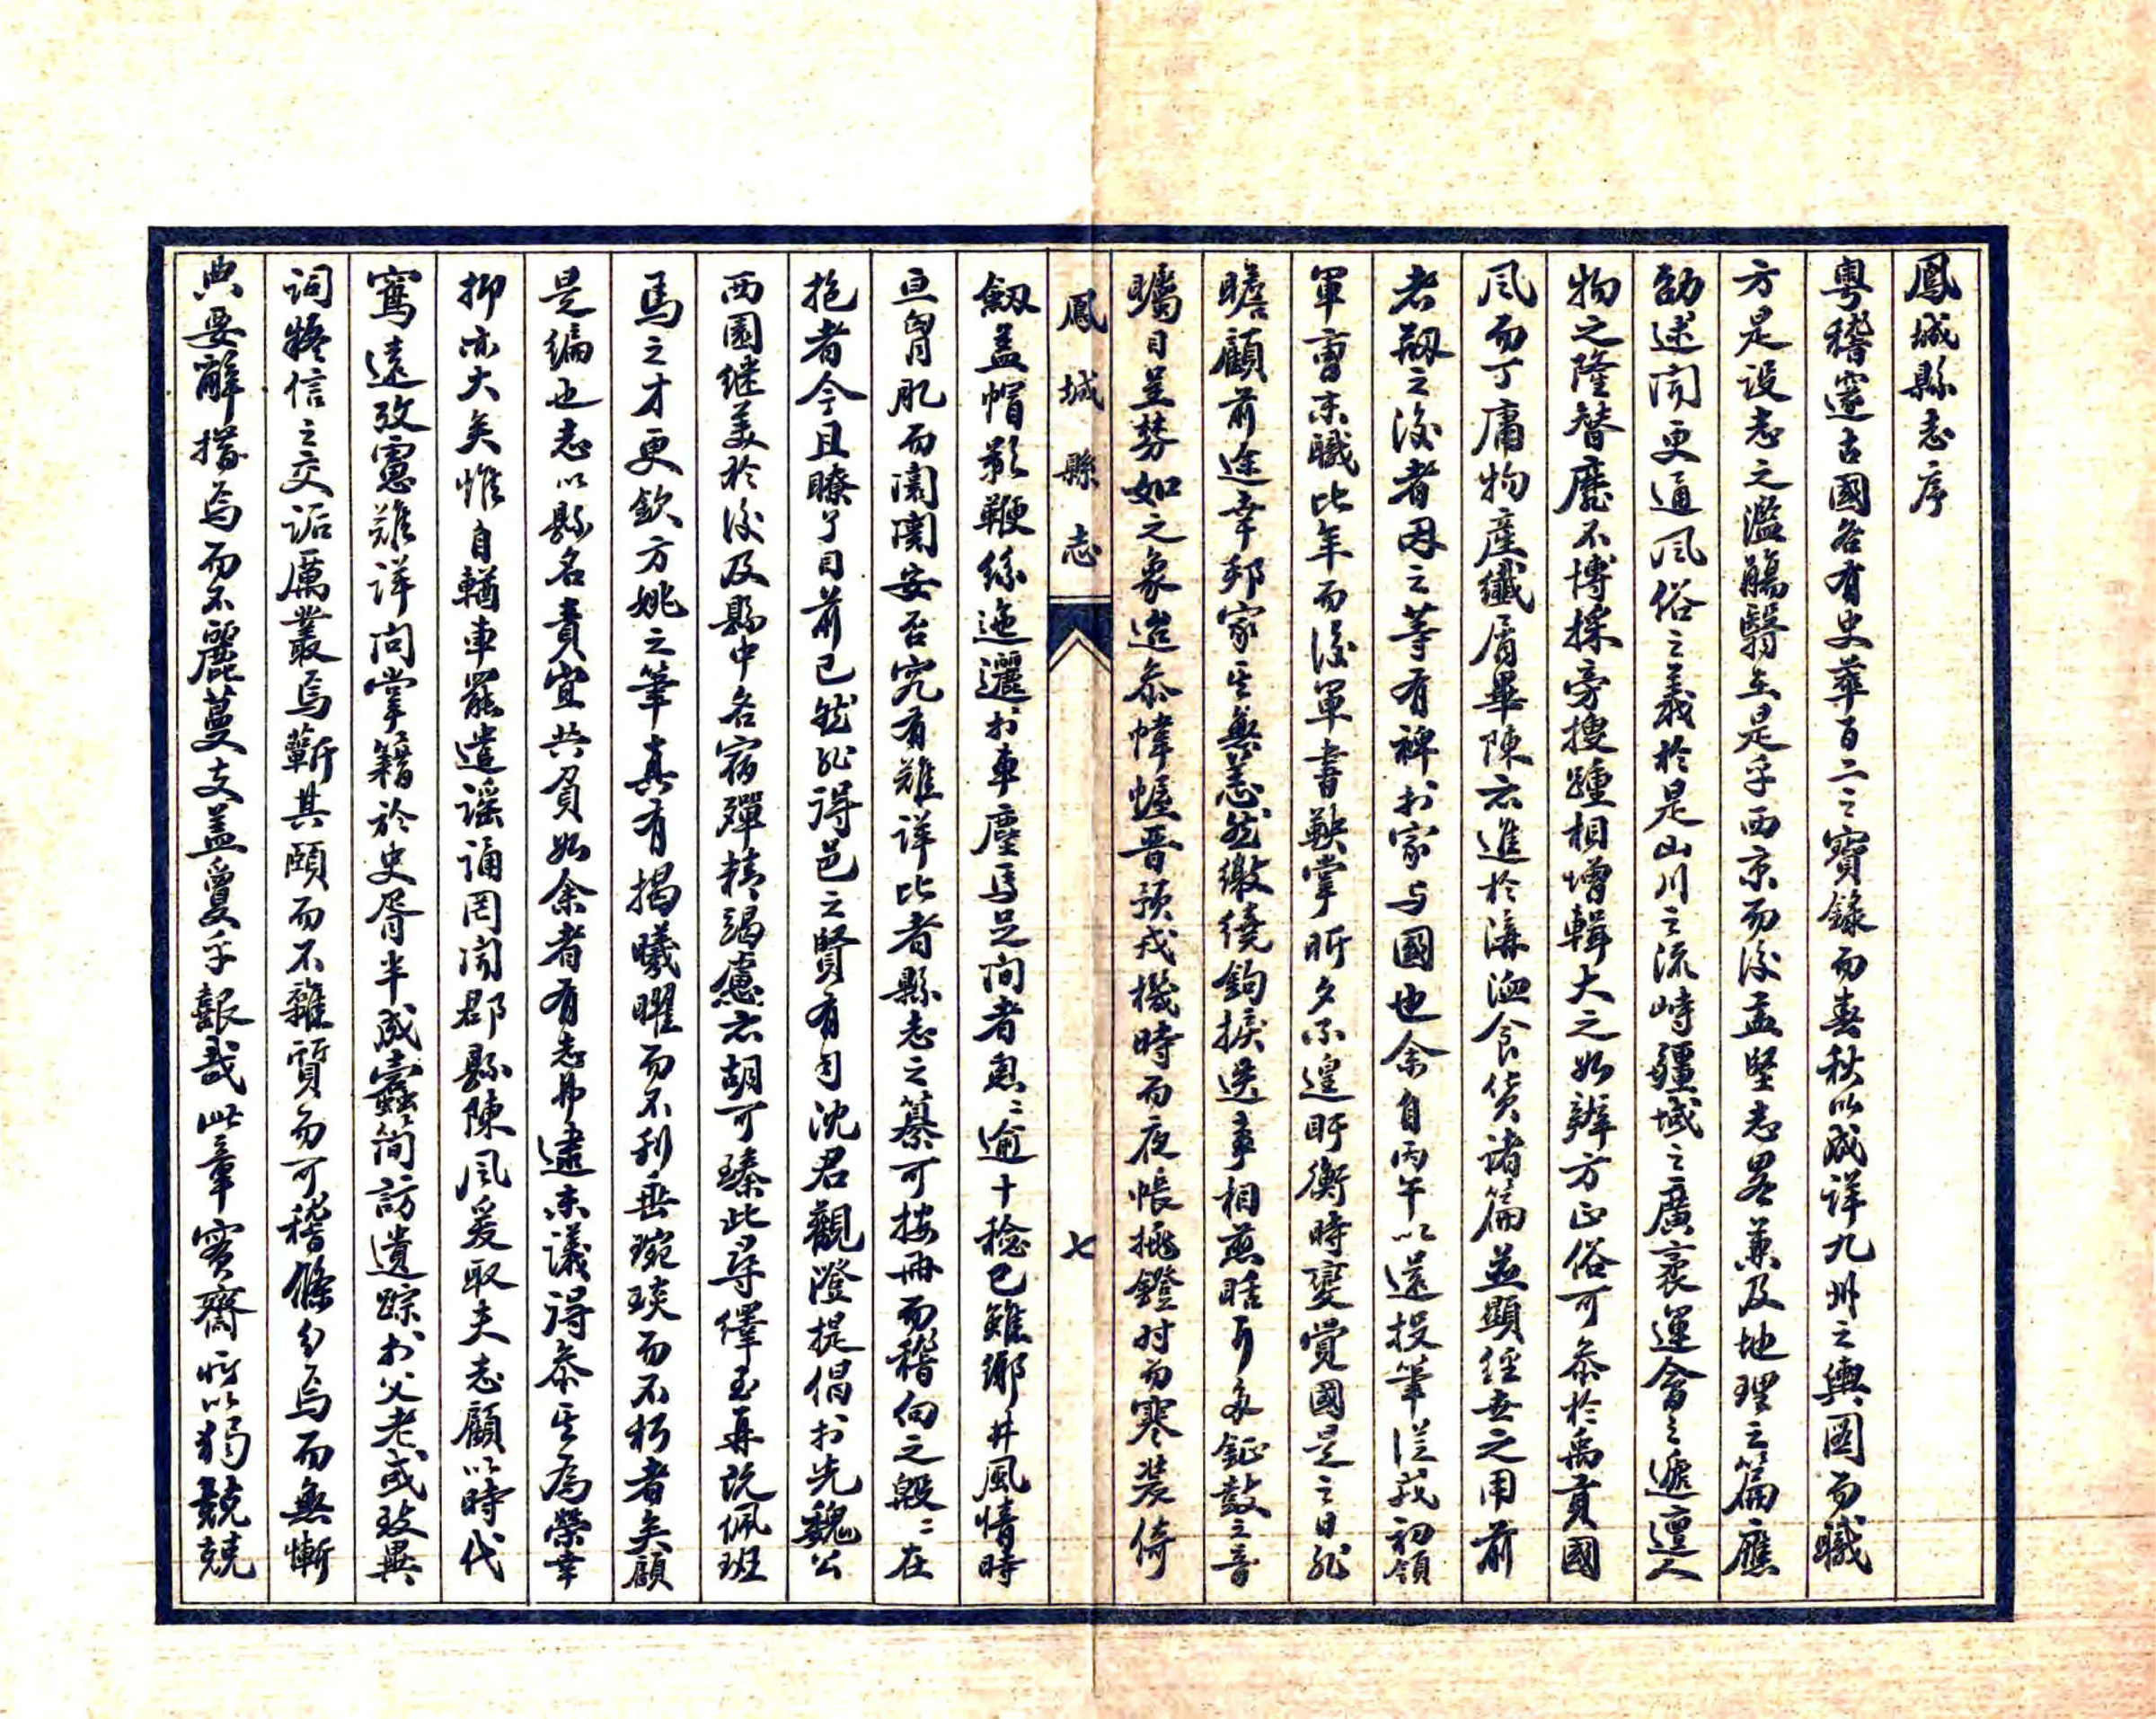 鳳城縣志序
粵稽邃古國各有史萃百二之寶錄而春秋以成詳九州之輿圖而職
方是設志之濫觴翳五是乎西京而後孟堅志畧兼及地理之篇應
劭述聞更通風俗之義於是山川之流峙疆域之廣袤運會之遞邅人
物之隆替靡不博採旁搜踵相增輯大之如辨方正俗可參於禹貢國
風而丁庸物產纖屑畢陳亦進於溝洫食貨諸篇並顯經世之用前
者剏之後者因之等有裨於家与國也余自丙午以還投筆從戎初領
軍曹末職比年而後軍書鞅掌昕夕不遑盱衡時變覺國是之日非
瞻顧前途幸邦家其無恙然繳繞鉤挨迭事相煎聒耳多鉦鼓之音
矚目呈棼如之象迨參幃幄晋預戎機時而夜帳挑鐙時而寒裝倚
鳳城縣志
七
劔盖帽影鞭絲迤邐於車塵馬足間者匆匆逾十稔已雖鄉井風情時
亘胷肊而闤闠安否究有難詳比者縣志之纂可按冊而稽向之殷殷在
抱者今且瞭了目前已然非得邑之賢有司沈君觀澄提倡於先魏公
西園继美於後及縣中各宿殫精竭慮亦胡可臻此尋繹至再説佩班
馬之才更欽方姚之筆真有揭曦曜而不刋垂琬琰而不朽者矣顧
是編也志以縣名責宜共負如余者有志弗逮末議得參其為榮幸
抑亦大矣惟自輶車罷遣謡诵罔聞郡縣陳風爰取夫志顧以時代
寫遠攷憲難详问掌籍於史胥半成蠹简訪遺踪於父老或致異
词疑信之交詬厲叢焉蕲其頤而不雜質而可稽條分焉而無慚
典要辭搢焉而不麗蔓支盖戛戛乎艱哉此章實齋所以獨兢兢